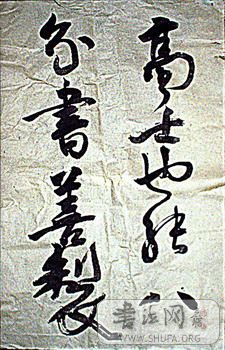 高士也能八
分書善制文
书法网
WWW.SHUFA.ORG